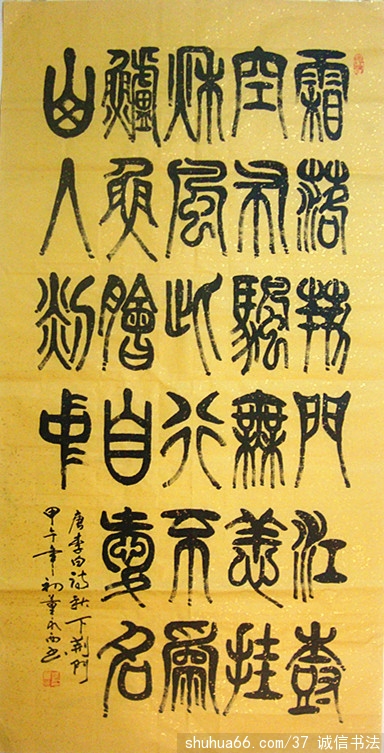 霜落荆門江樹
空布帆無恙挂
秋風此行不爲
鱸魚膾自愛名
山入剡中
唐李白詩秋下荆門
甲午年初董西书
shuhua66.com/37 诚信书法